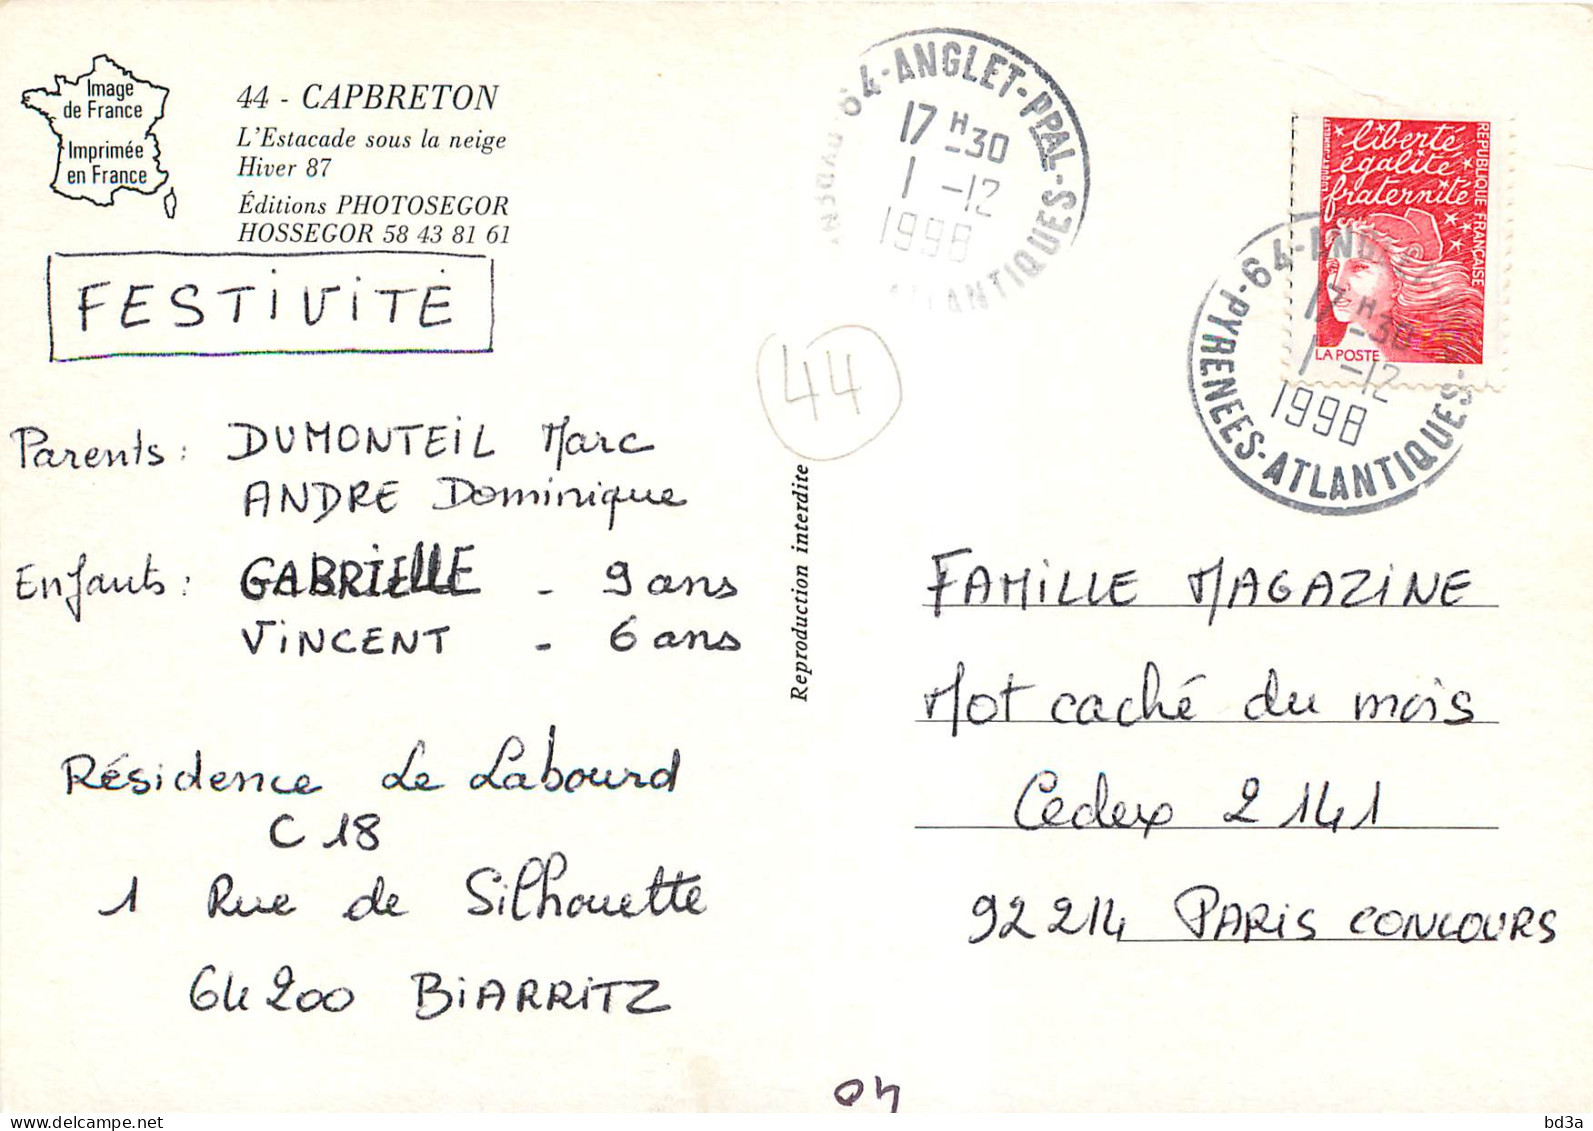 Image
de France
Imprimée
en France
44 - CAPBRETON
L'Estacade sous la neige
Hiver 87
Éditions PHOTOSEGOR
HOSSEGOR 58 43 81 61
FESTIVITÉ
Parents : DUMONTEIL Marc
ANDRE Dominique
Enfants : GABRIELLE - 9 ans
VINCENT - 6 ans
Résidence Le Labourd
C 18
1 Rue de Silhouette
64200 BIARRITZ
44
Reproduction interdite
64-ANGLET-PPAL-S
ATLANTIQUES
17 H 30
1 -12
1998
liberté
égalité
fraternité
REPUBLIQUE FRANÇAISE
LA POSTE
64-ANGLET
PYRENEES-ATLANTIQUES
17 H 30
1 -12
1998
FAMILLE MAGAZINE
Mot caché du mois
Cedex 2141
92214 PARIS CONCOURS
04
bd3a